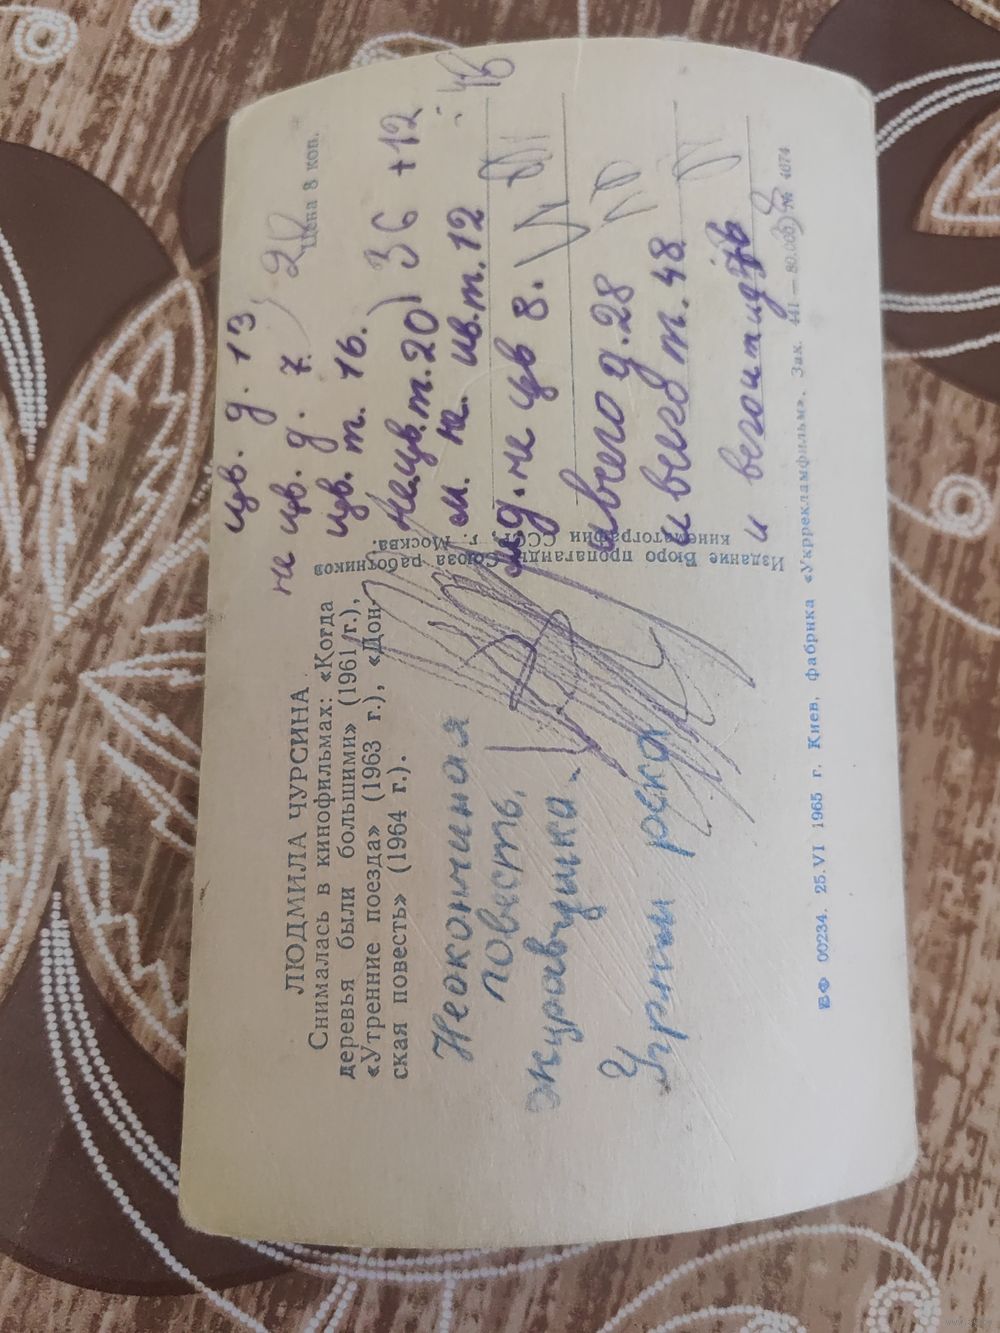 ЛЮДМИЛА ЧУРСИНА
Снималась в кинофильмах: «Когда
деревья были большими» (1961 г.),
«Утренние поезда» (1963 г.), «Дон-
ская повесть» (1964 г.).
Неокончиная
повесть.
журавушка.
Угрюм река
Издание Бюро пропаганды Союза работников
кинематографии СССР, г. Москва.
Цена 8 коп.
цв. д. 13
не цв. д. 7.
цв. т. 16.
не цв. т. 20) 36 +12
м. не. цв. т. 12
мд. не цв 8.
всего д. 28
и всего т. 48
и
БФ 00234. 25.VI 1965 г. Киев, фабрика «Укррекламфильм». Зак. 441 — 80.000